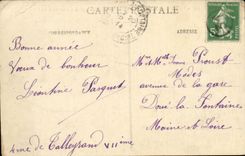 CARTE POSTALE
CORRESPONDANCE
ADRESSE
Bonne année
Vœux de bonheur
Léontine Parquet
4 me de Talleyrand VII ème
Mr et Mme Jean Proust
Modes
avenue de la gare
Doué la Fontaine
Maine et Loire